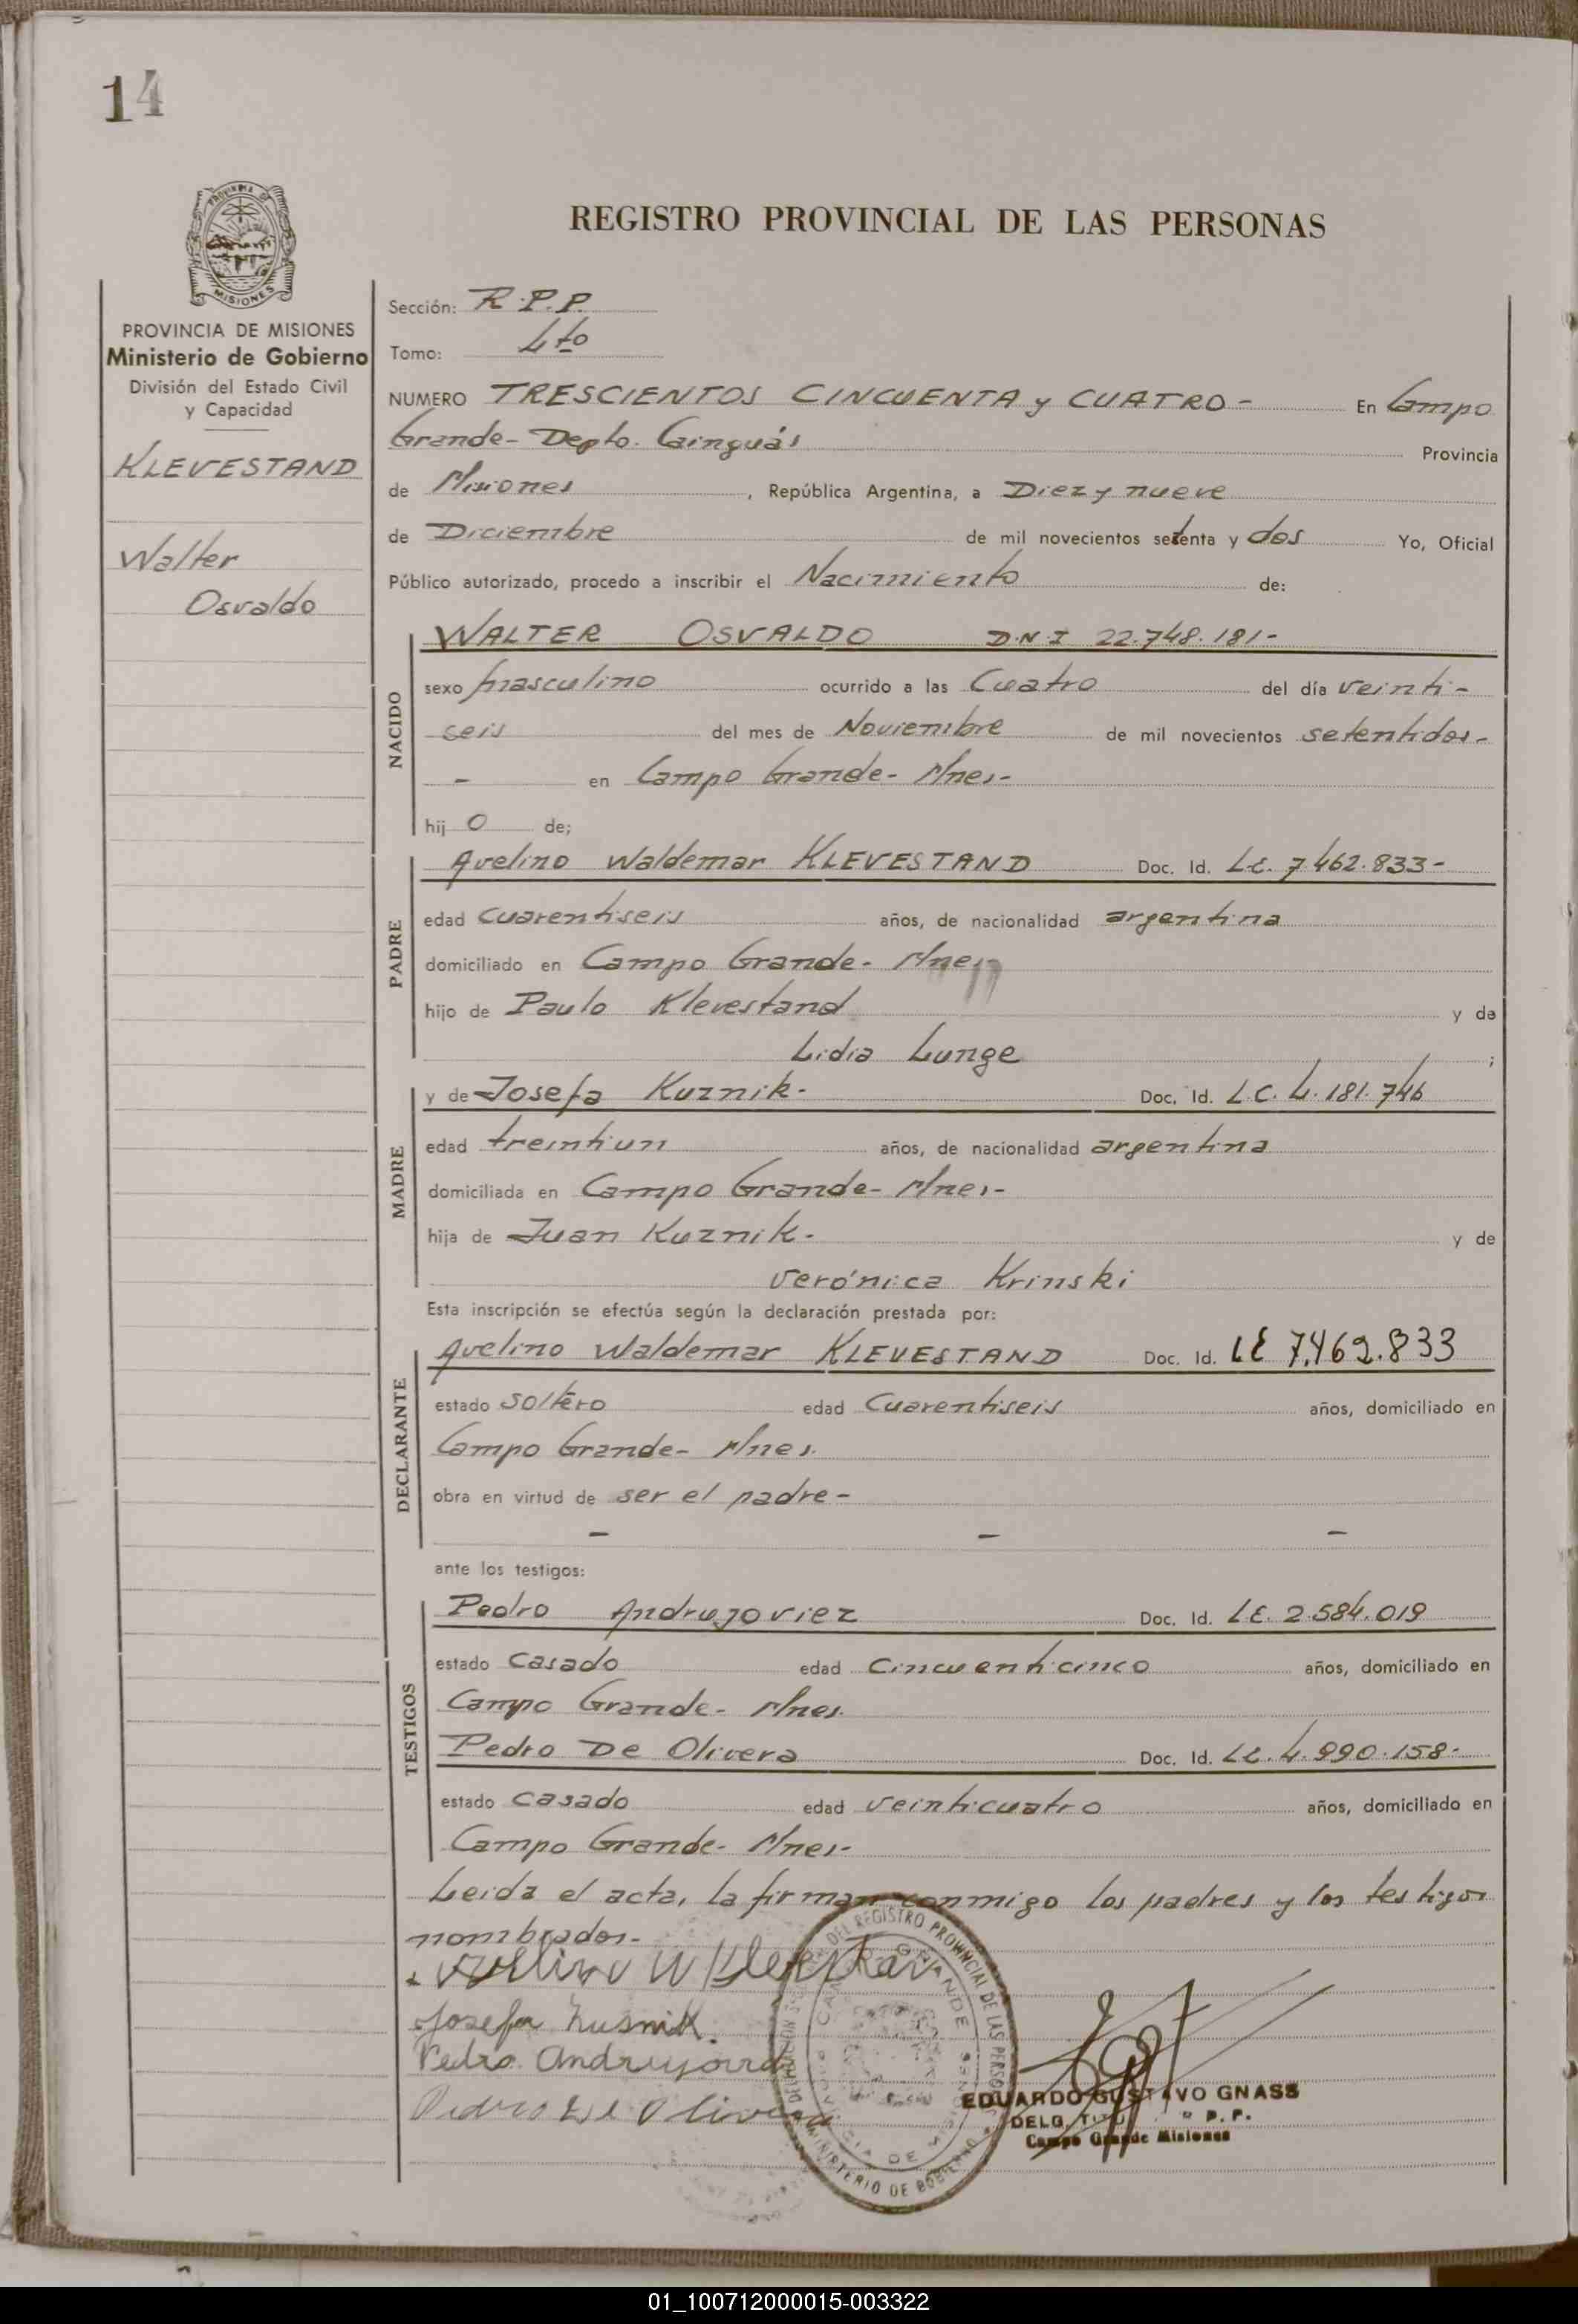 14
PROVINCIA
MISIONES
REGISTRO PROVINCIAL DE LAS PERSONAS
PROVINCIA DE MISIONES
Ministerio de Gobierno
División del Estado Civil
y Capacidad
KLEVESTAND
Walter
Osvaldo
Sección: R.P.P.
Tomo: 4to
NUMERO TRESCIENTOS CINCUENTA y CUATRO- En Campo
Grande- Depto. Cainguás Provincia
de Misiones, República Argentina, a Diez y nueve
de Diciembre de mil novecientos setenta y dos Yo, Oficial
Público autorizado, procedo a inscribir el Nacimiento de:
NACIDO
WALTER OSVALDO D.N.I 22.748.181-
sexo masculino ocurrido a las Cuatro del día veinti-
seis del mes de Noviembre de mil novecientos setentidos-
- en Campo Grande- Mnes-
hij o de;
PADRE
Avelino Waldemar KLEVESTAND Doc. Id. L.E. 7.462.833-
edad cuarentiseis años, de nacionalidad argentina
domiciliado en Campo Grande- Mnes-
hijo de Paulo Klevestand y de
Lidia Lunge ;
MADRE
y de Josefa Kuznik- Doc. Id. L.C. 4.181.746
edad treintiun años, de nacionalidad argentina
domiciliada en Campo Grande- Mnes-
hija de Juan Kuznik- y de
Verónica Krinski
Esta inscripción se efectúa según la declaración prestada por:
DECLARANTE
Avelino Waldemar KLEVESTAND Doc. Id. LE 7.462.833
estado soltero edad Cuarentiseis años, domiciliado en
Campo Grande- Mnes.
obra en virtud de ser el padre-
- - -
ante los testigos:
TESTIGOS
Pedro Andrujoviez Doc. Id. L.E. 2.584.019
estado casado edad Cincuenticinco años, domiciliado en
Campo Grande- Mnes.
Pedro De Olivera Doc. Id. L.E. 4.990.158-
estado casado edad veinticuatro años, domiciliado en
Campo Grande- Mnes-
Leida el acta, la firman conmigo los padres y los testigos
nombrados-
Avelino W Klevestan
Josefa Kusnik.
Pedro
Pedro De Olivera
DEL REGISTRO PROVINCIAL DE LAS PERSONAS
MINISTERIO DE GOBIERNO
EDUARDO GUSTAVO GNASS
DELG. P. P.
Campo Grande Misiones
01_100712000015-003322